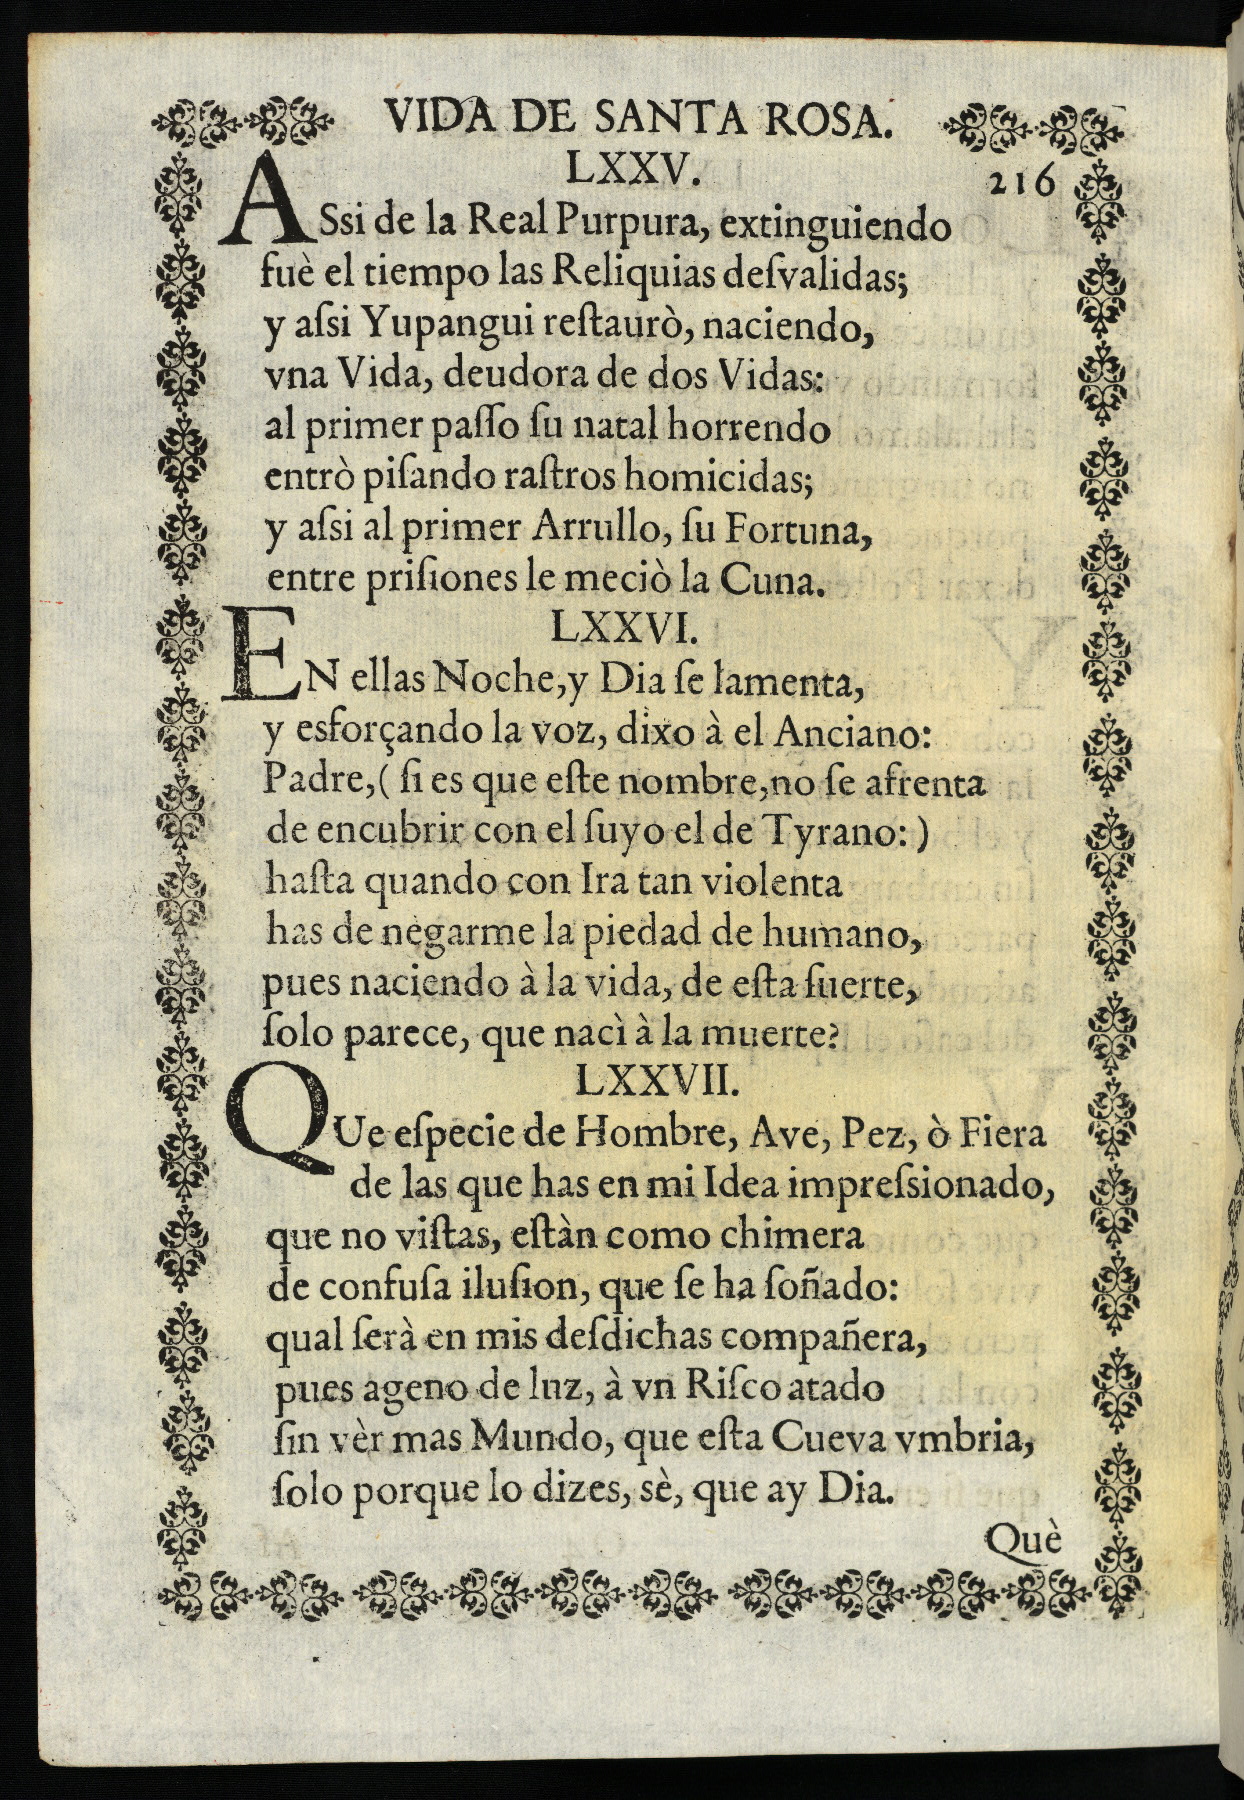 VIDA DE SANTA ROSA.
LXXV.
216
ASsi de la Real Purpura, extinguiendo
fuè el tiempo las Reliquias deſvalidas;
y aſsi Yupangui reſtaurò, naciendo,
vna Vida, deudora de dos Vidas:
al primer paſſo ſu natal horrendo
entrò piſando raſtros homicidas;
y aſsi al primer Arrullo, ſu Fortuna,
entre priſiones le meciò la Cuna.
LXXVI.
EN ellas Noche, y Dia ſe lamenta,
y esforçando la voz, dixo à el Anciano:
Padre, ( ſi es que eſte nombre, no ſe afrenta
de encubrir con el ſuyo el de Tyrano: )
haſta quando con Ira tan violenta
has de negarme la piedad de humano,
pues naciendo à la vida, de eſta ſuerte,
ſolo parece, que nacì à la muerte?
LXXVII.
QUe eſpecie de Hombre, Ave, Pez, ò Fiera
de las que has en mi Idea impreſsionado,
que no viſtas, eſtàn como chimera
de confuſa iluſion, que ſe ha ſoñado:
qual ſerà en mis deſdichas compañera,
pues ageno de luz, à vn Riſco atado
ſin vèr mas Mundo, que eſta Cueva vmbria,
ſolo porque lo dizes, sè, que ay Dia.
Què